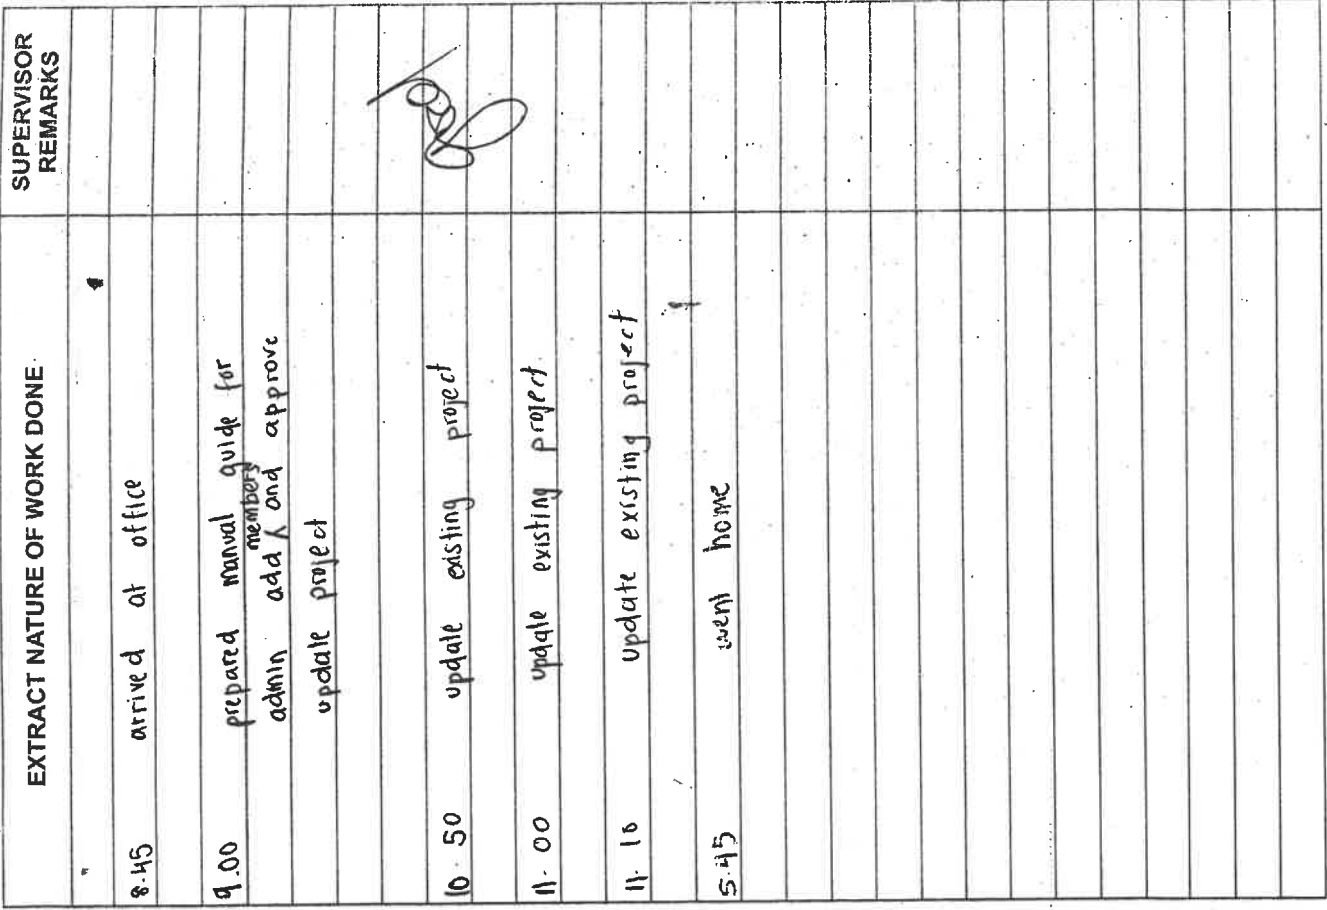 EXTRACT NATURE OF WORK DONE
SUPERVISOR
REMARKS
8.45 arrived at office
9.00 prepared manual guide for
members
admin add ʎ and approve
update project
10.50 update existing project
11.00 update existing project
11.10 update existing project
5.45 went home